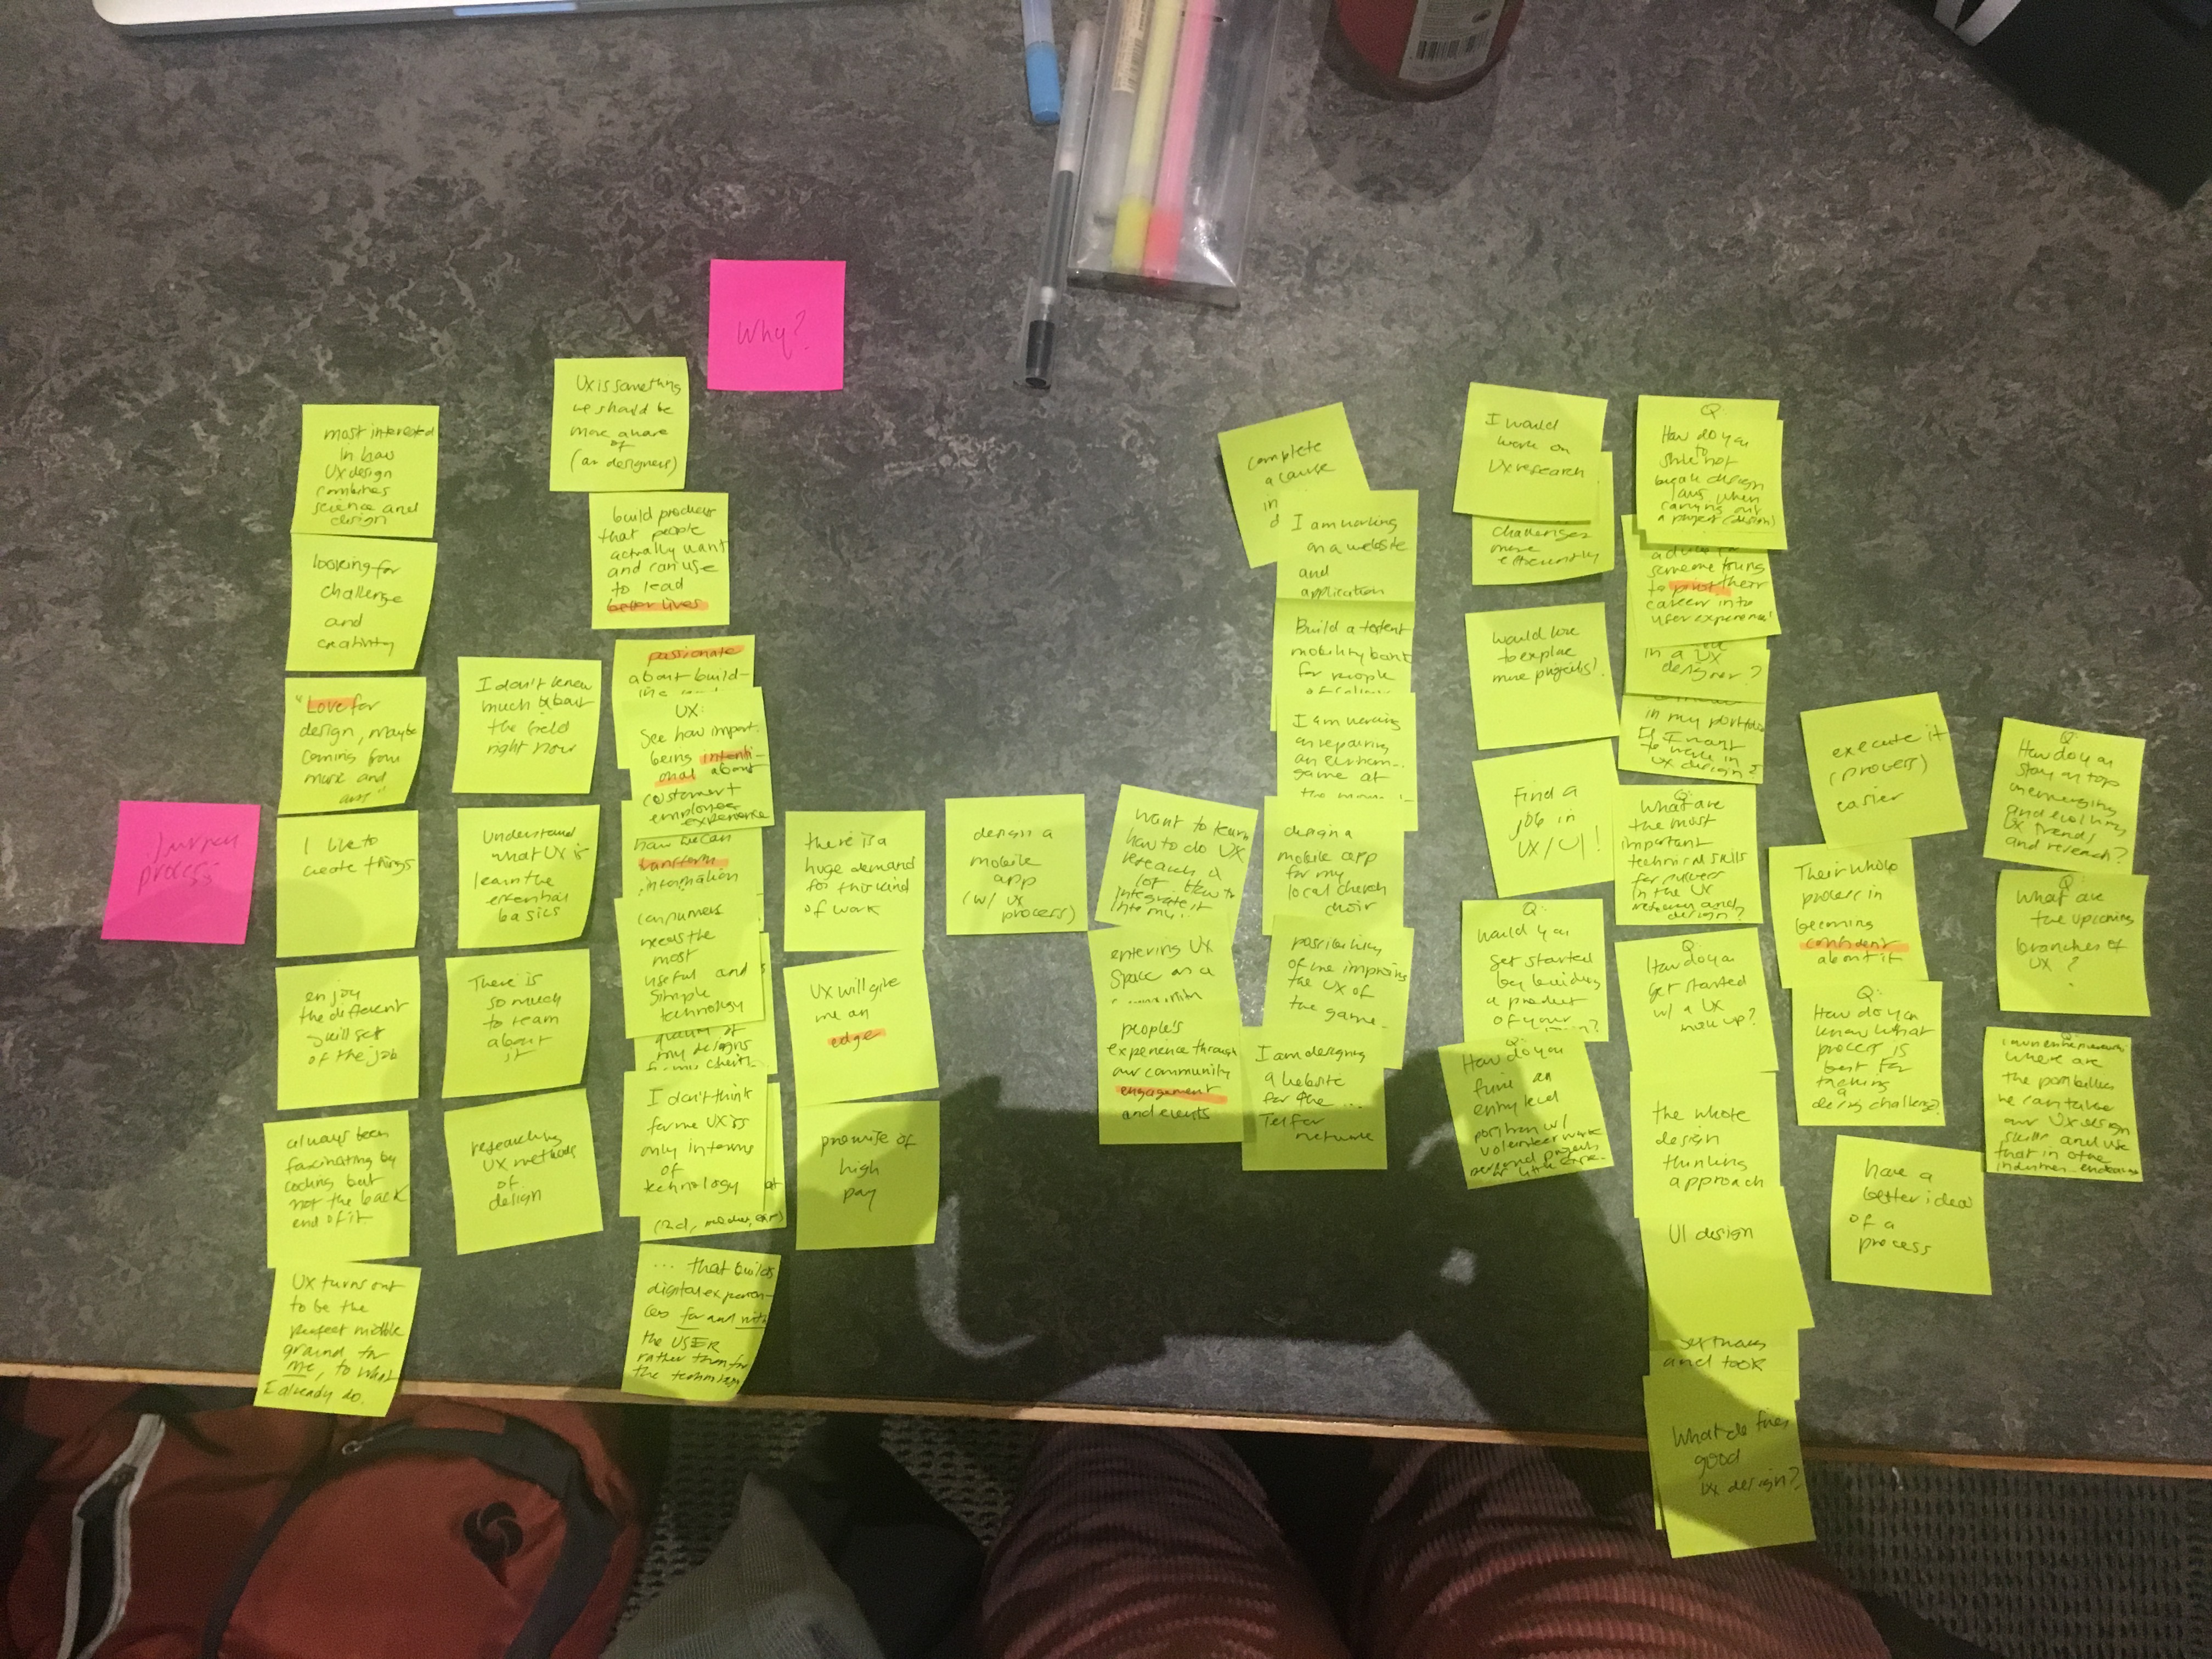 Why?
process
most interested
in how
UX design
combines
science and
design
looking for
challenge
and
creativity
"Love for
design, maybe
coming from
music and
art"
I like to
create things
enjoy
the different
skill set
of the job
always been
fascinating by
coding but
not the back
end of it
UX turns out
to be the
perfect middle
ground for
me, to what
I already do.
I don't know
much about
the field
right now
Understand
what UX is
learn the
essential
basics
There is
so much
to learn
about
it
researching
UX methods
of
design
UX is something
we should be
more aware
of
(as designers)
build products
that people
actually want
and can use
to lead
better lives
passionate
about build-
UX:
See how import.
being intenti-
onal about
customer +
employee
experience
how we can
transform
information
consumers
needs the
most
useful and
simple
technology
my designs
I don't think
for me UX is
only in terms
of
technology
... that builds
digital experien-
ces for and with
the USER
rather than for
the
there is a
huge demand
for this kind
of work
UX will give
me an
edge
promise of
high
pay
design a
mobile
app
(w/ UX
process)
want to learn
how to do UX
research a
lot. How to
integrate it
into my
entering UX
space as a
people's
experience through
our community
engagement
and events
complete
a
in
I am working
on a website
and
application
Build a
mobility
for people
I am working
on repairing
an
game at
the
design a
mobile app
for my
local church
choir
possibility
of me improving
the UX of
the game.
I am designing
a website
for the ...
Telfer
network
I would
work on
UX research
challenges
more
efficiently
would love
to explore
more projects!
Find a
job in
UX/UI!
Q:
Would you
get started
by building
a product
of your
?
Q:
How do you
find an
entry level
position w/
volunteer work
personal projects
or little expe.
Q:
How do you
to
not
break design
laws when
carrying out
a project (design)
someone trying
to pivot their
career into
user experience?
in a UX
designer?
in my portfolio
if I want
to work in
UX design?
Q:
What are
the most
important
technical skills
for
in the UX
and
design?
Q
How do you
get started
w/ a UX
mock up?
the whole
design
thinking
approach
UI design
and tools
What defines
good
UX design?
execute it
(process)
easier
Their whole
process in
becoming
confident
about it
Q:
How do you
know what
process is
best for
tackling
a
design challenge?
have a
better idea
of a
process
Q:
How do you
stay on top
emerging
and evolving
UX trends
and research?
Q:
What are
the upcoming
branches of
UX?
where are
the possibilities
we can take
our UX design
skills and use
that in other
industries